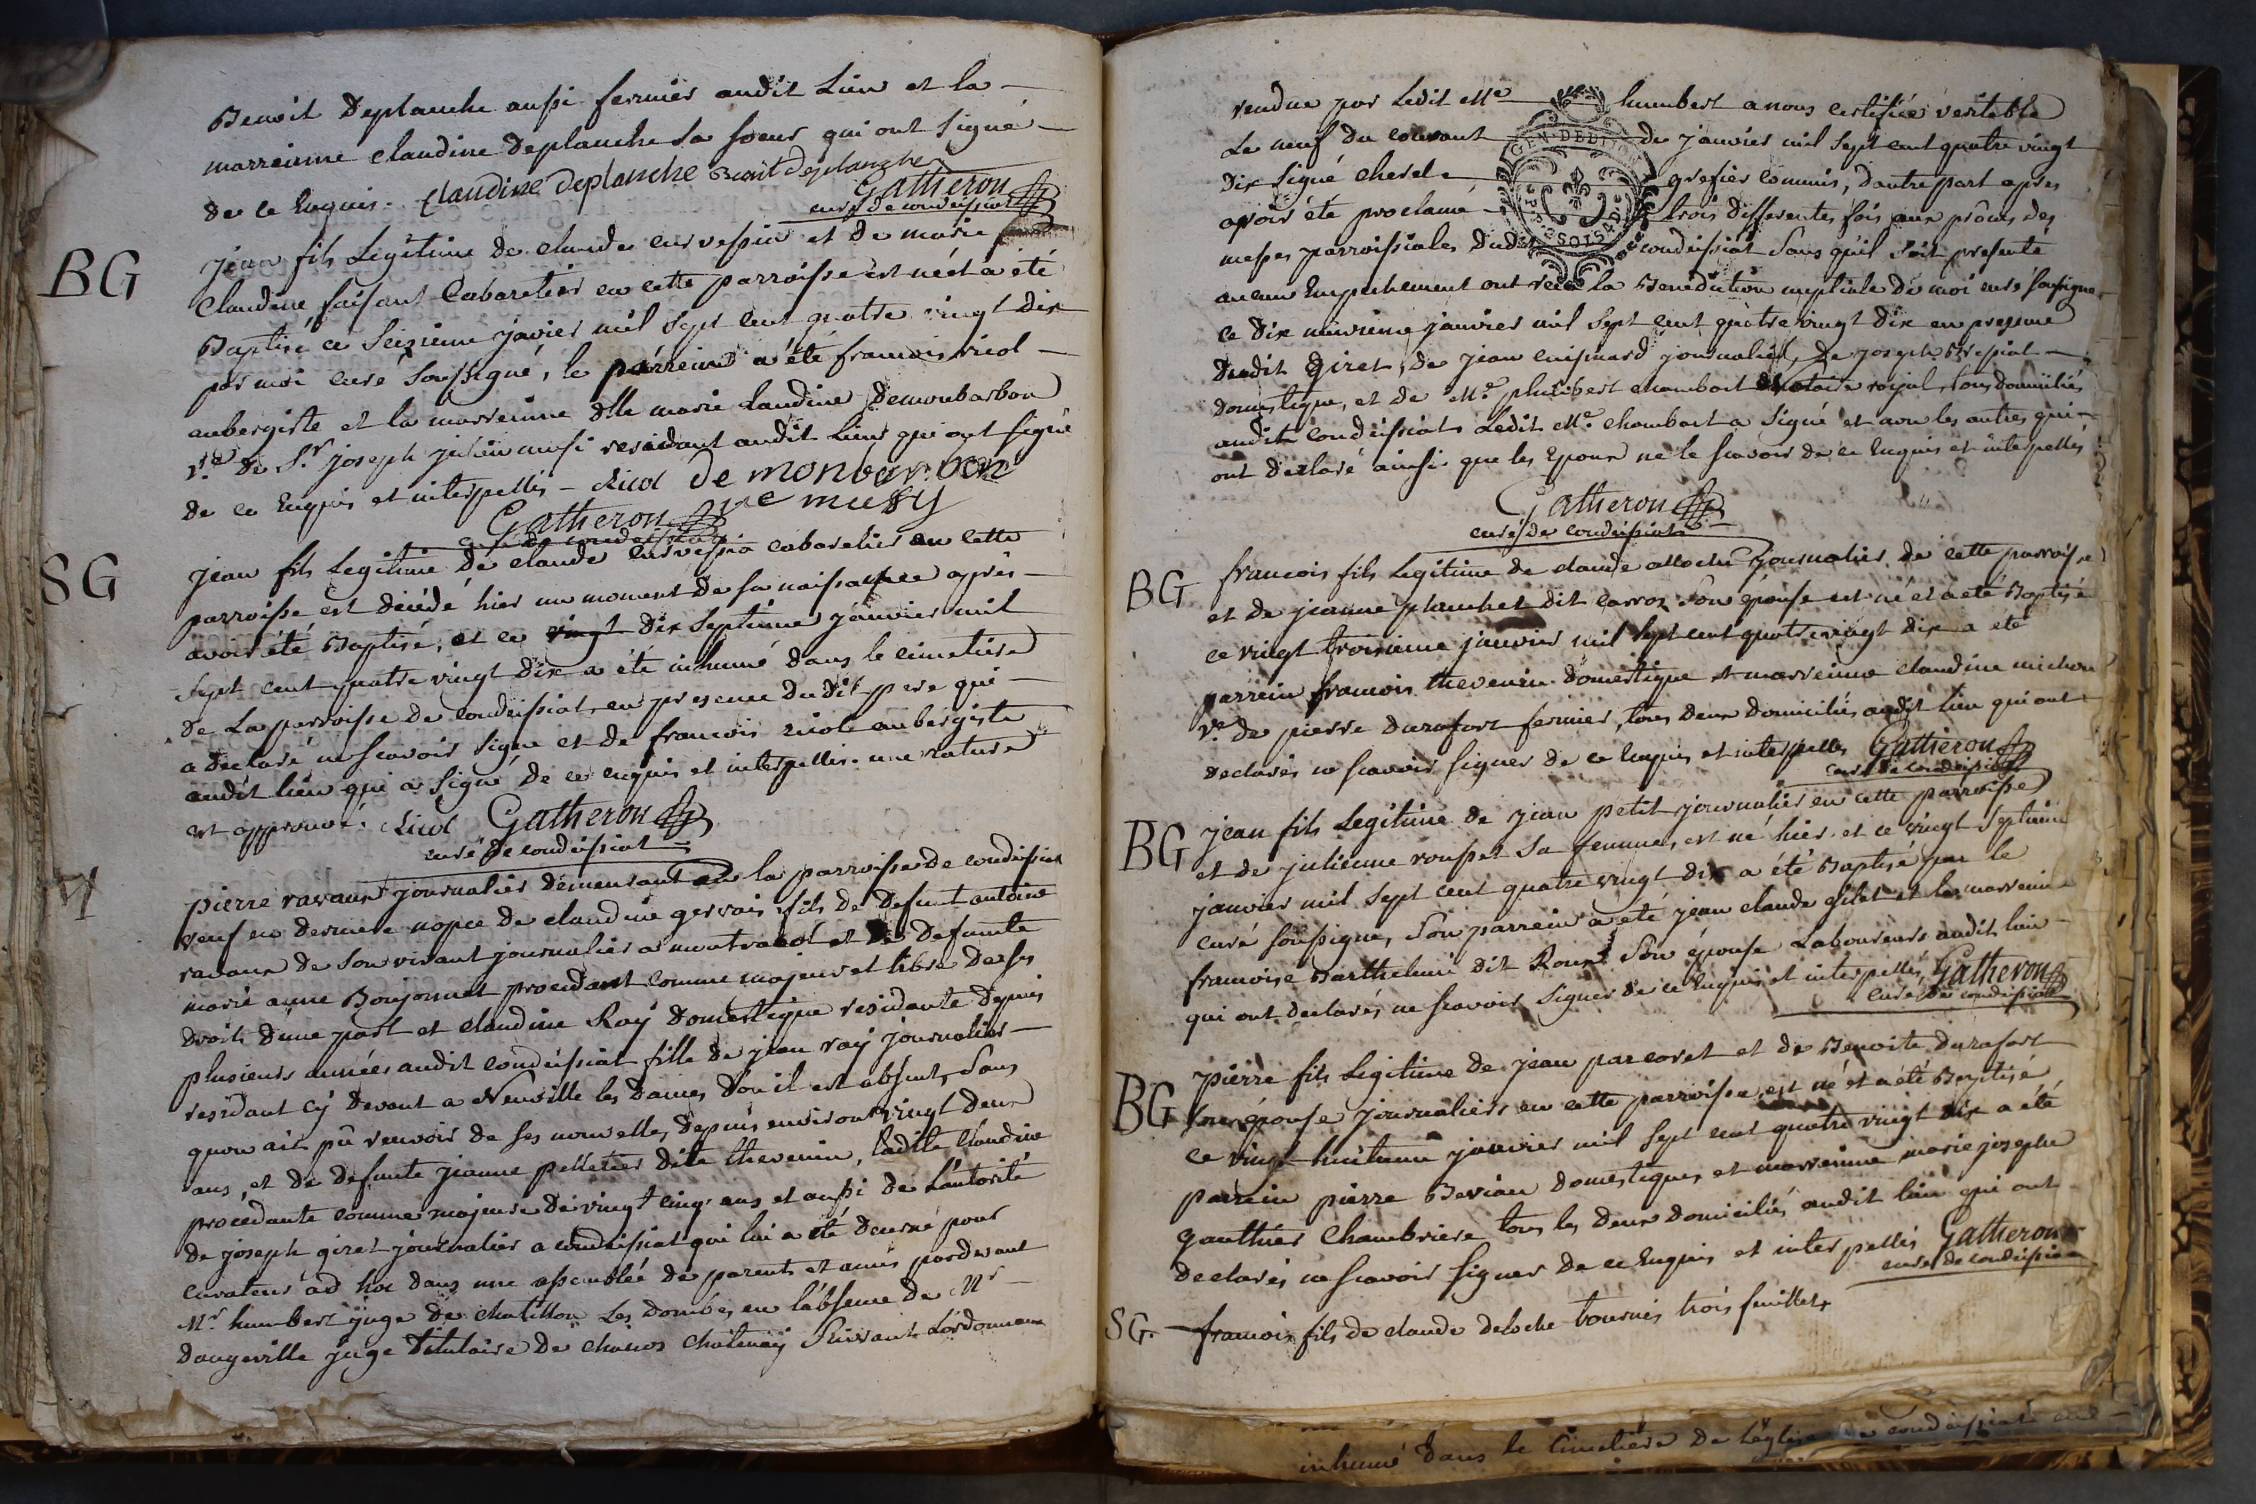 Benoit Deplanche aussi fermier audit Lieu et la
marreinne claudine Deplanche Sa soeur qui ont Signé
de ce Enquis. Claudine deplanche Benoit Deplanche
Gatheron
curé de condeissiat
BG
jean fils Legitime de claude curvessia et de marie
Claudine, faisant Cabaretier en cette parroisse est né et a eté
Baptisé ce Seizieme javier mil Sept Cent quatre vingt Dix
par moi curé Soussigné, le parrein a été francois ricol
aubergiste et la marreinne dlle marie Claudine Demonbarbon
ve. de Sr. joseph aussi residant audit Lieu qui ont Signé
de ce Enquis et interpellés - Ricol de monbarbon
ve musy
Gatheron
curé de condeissiat
SG
jean fils Legitime de claude curvessia cabaretier en cette
parroisse est décédé hier un moment de sa naissance après
avoir été Baptisé, et ce vingt Dix Septieme janvier mil
Sept cent quatre vingt Dix a été inhumé dans le cimetiere
de La parroisse de condeissiat, en presence du dit pere qui
a declaré ne scavoir Signe et de francois ricole aubergiste
audit lieu qui a Signé, de ce enquis et interpellés. une rature
est approuvé. Ricol Gatheron
curé de condeissiat
M
pierre ravaux journalier demeurant en la parroisse de condeissiat
veuf en derniere nopce de claudine gervais, fils de defunt antoine
ravaux de son vivant journalier a montracol et de defunte
marie anne Bonjournet procedant comme majeur et libre de ses
droits d'une part et claudine Ray Domestique residante depuis
plusieurs années audit condeissiat fille de jean ray journalier
residant cÿ devant a Neuville les Dames Dou il est absent, Sans
quon ait pû reuvoir de ses nouvelles depuis environt vingt deux
ans, et de defunte jeanne pelletier dite thevenin, ladite Claudine
procedante comme majeure de vingt cinq ans et aussi de Lautorité
de joseph giret journalier a condeissiat qui lui a été decerné pour
curateur ad hoc dans une assemblée de parents et amis pardevant
Mr. humbert juge de chatillon Les dombes en l'absence de Mr
Dangeville juge titulaire de chanos chatenaÿ Suivant Lordonnance
rendue par Ledit Me humbert a nous certifiée veritable
Le neuf du courant de janvier mil Sept cent quatre vingt
Dix Signé cherel grefier Commis, Dautre part apres
avoir été proclamé trois differentes fois aux prônes des
messes parroissiales dudit condeissiat Sans quil Soit presente
aucun Empechement ont recu La Benediction nuptiale de moi curé soussigné
ce Dix neuvieme janvier mil Sept cent quatre vingt Dix en presence
dudit Giret, de jean cuisinard journalier, De joseph Bressiat
domestique, et de Me. philibert chambart notaire royal, tous domiciliés
audit condeissiat Ledit Me. chambart a Signé et non les autres qui
ont declaré ainsi que les Epoux ne le scavoir de ce Enquis et interpellés
Gatheron
curé de condeissiat
BG
francois fils Legitime de claude journalier de cette parroisse
et de jeanne planchet dit carroz Son épouse est né et a été Baptisé
ce vingt troisieme janvier mil Sept cent quatre vingt dix a eté
parrein francois thevenin domestique et marreinne claudine michon
ve. de pierre durafort fermier, tous deux domiciliés audit lieu qui ont
declarés ne scavoir signer de ce Enquis et interpellés Gatheron
curé de condeissiat
BG
jean fils Legitime de jean petit journalier en cette parroisse
et de julienne rousset Sa femme, est né hier et ce vingt Septieme
janvier mil Sept cent quatre vingt dix a été Baptisé par le
curé soussigne, Son parrein a été jean claude gilet et la marreinne
francoise Barthelemi dit Roux Son épouse Laboureurs audit lieu
qui ont declarés ne scavoir Signer de ce Enquis et interpellés, Gatheron
curé de condeissiat
BG
pierre fils Legitime de jean parcoret et de Benoite durafort
Son épouse journaliers en cette parroisse, est né et a été Baptisé
ce vingt huitieme janvier mil Sept cent quatre vingt dix a été
parrein pierre Bevian domestique, et marreinne marie josephe
gauthier Chambriere tous les deux domiciliés audit lieu qui ont
declarés ne scavoir signer de ce Enquis et interpellés Gatheron
curé de condeissiat
SG. francois fils de claude deloche tournés trois feuillets
inhumé dans le Cimetiere de l'eglise de condeissiat